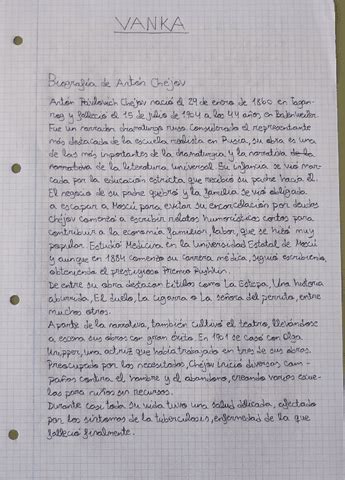 VANKA
Biografía de Antón Chéjov
Antón Pávlovich Chéjov nació el 29 de enero de 1860 en Tagan-
rog y falleció el 15 de julio de 1904 a los 44 años, en Badenweiler.
Fue un narrador dramaturgo ruso. Considerado el representante
más destacado de la escuela realista en Rusia, su obra es una
de las más importantes de la dramaturgia y la narrativa de la
narrativa de la literatura universal. Su infancia se vio mar-
cada por la educación estricta que recibió su padre hacia él.
El negocio de su padre quebró y la familia se vió obligada
a escapar a Moscú para evitar su encarcelación por deudas
Chéjov comenzó a escribir relatos humorísticos cortos para
contribuir a la economía familiar, labor, que se hizo muy
popular. Estudió Medicina en la Universidad Estatal de Moscú
y aunque en 1884 comenzó su carrera médica, siguió escribiendo,
obteniendo el prestigioso Premio Pushkin.
De entre su obra destacan títulos como La Estepa, Una historia
aburrida, El duelo, La cigarra o La señora del perrito, entre
muchos otros.
A parte de la narrativa, también cultivó el teatro, llevándose
a escena sus obras con gran éxito. En 1901 se casó con Olga
Knipper, una actriz que había trabajado en tres de sus obras.
Preocupado por los necesitados, Chéjov inició diversas cam-
pañas contra el hambre y el abandono, creando varias escue-
las para niños sin recursos.
Durante casi toda su vida tuvo una salud delicada, afectado
por los síntomas de la tuberculosis, enfermedad de la que
falleció finalmente.